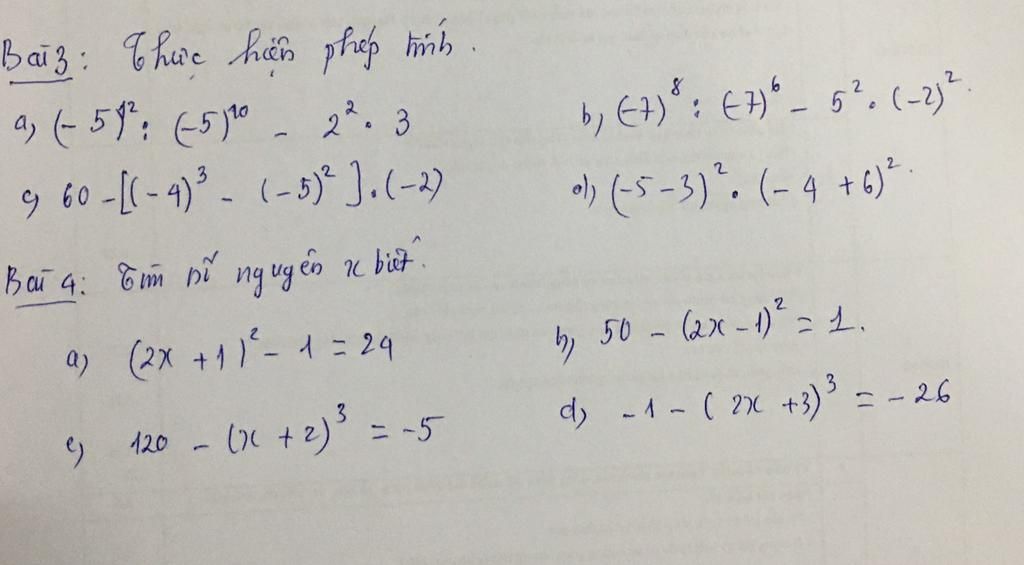 Bài 3: Thực hiện phép tính.
a, (-5)¹²: (-5)¹⁰ - 2² . 3 b, (-7)⁸ : (-7)⁶ - 5² . (-2)².
c, 60 - [(-4)³ - (-5)²].(-2) d), (-5-3)² . (-4+6)².
Bài 4: Tìm số nguyên x biết.
a) (2x + 1)² - 1 = 24 b, 50 - (2x - 1)² = 1.
c, 120 - (x + 2)³ = -5 d, -1 - (2x + 3)³ = -26